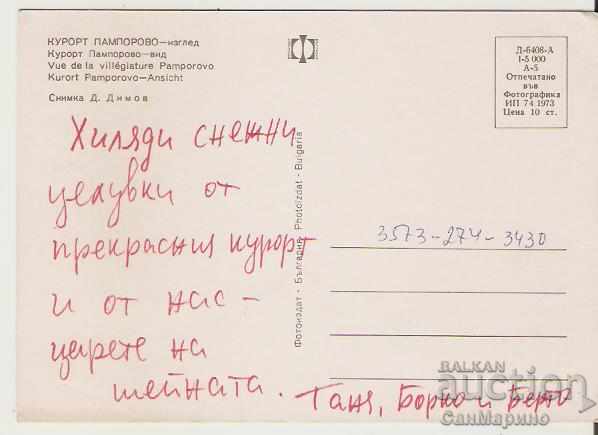 КУРОРТ ПАМПОРОВО—изглед
Курорт Пампорово—вид
Vue de la villégiature Pamporovo
Kurort Pamporovo—Ansicht
Снимка Д. Димов
Д-6408-А
I-5 000
А-5
Отпечатано
във
Фотографика
ИП 74 1973
Цена 10 ст.
Хиляди снежни
целувки от
прекрасния курорт
и от нас –
царете на
шейната.
Таня, Борко и Берто
Фотоиздат - България Photoizdat - Bulgaria
3573-274-3430
BALKAN
auction
СанМарино